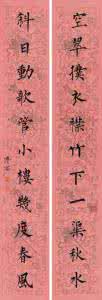 空翠撲衣襟竹下一渠秋水
斜日動歌管小樓幾度春風